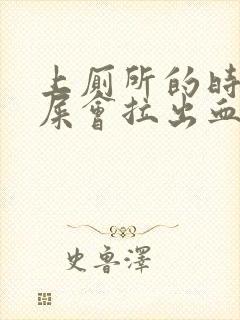 上厠所的時
屎會拉出血
史魯澤